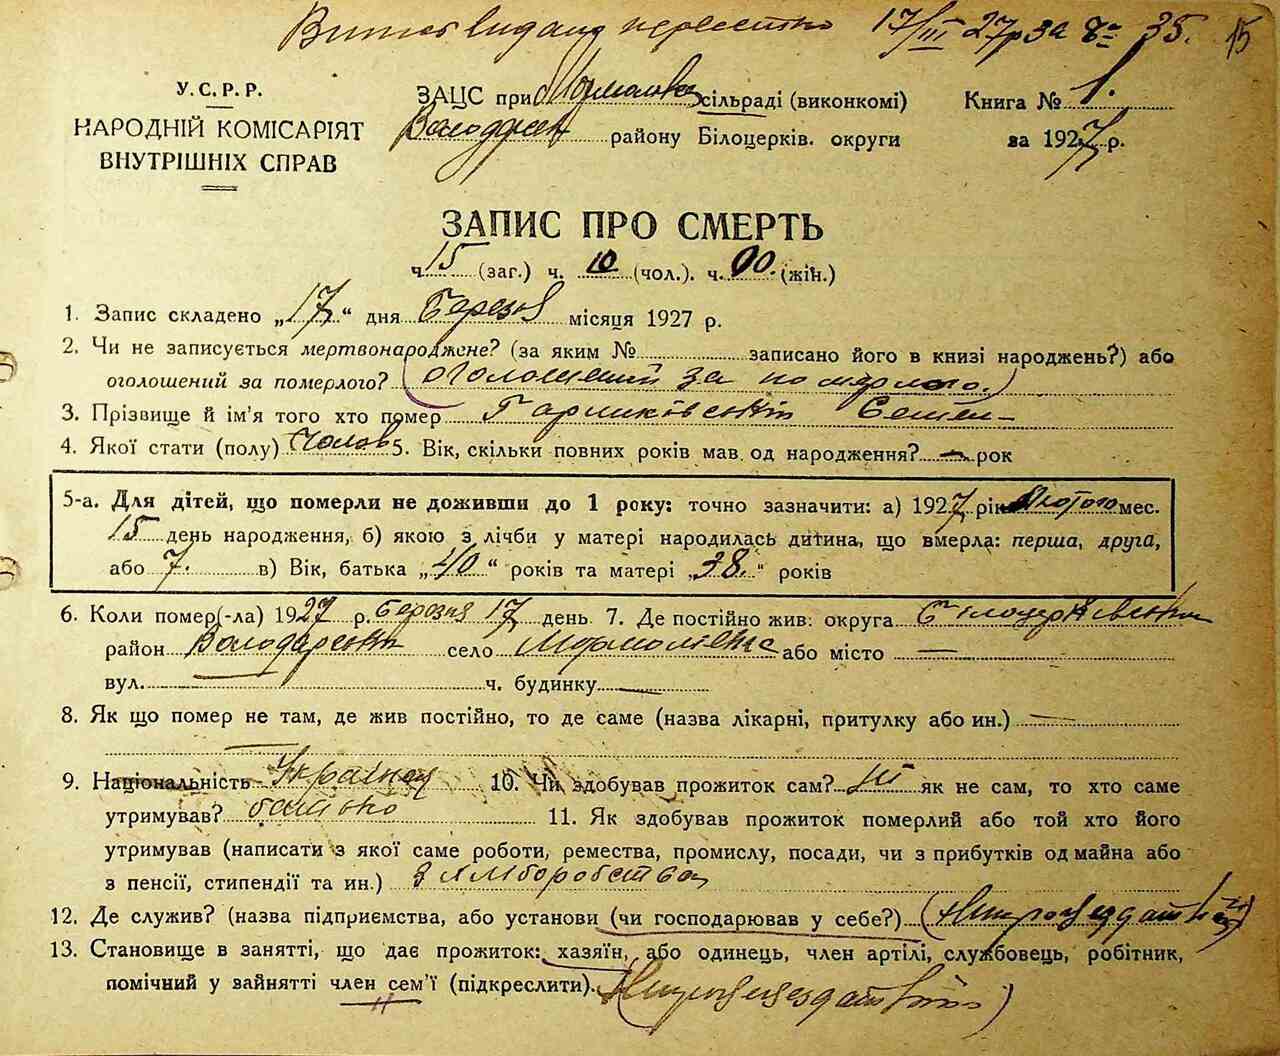 17/III 27р за 35. 15
У.С.Р.Р.
НАРОДНІЙ КОМІСАРІЯТ
ВНУТРІШНІХ СПРАВ
ЗАЦС при сільраді (виконкомі)
району Білоцерків. округи
Книга № 1.
за 1927 р.
ЗАПИС ПРО СМЕРТЬ
ч. 15 (заг.) ч. 10 (чол.). ч. 00. (жін.)
1. Запис складено „17“ дня Березня місяця 1927 р.
2. Чи не записується мертвонароджене? (за яким № записано його в книзі народжень?) або
оголошений за померлого? (оголошений за померлого.)
3. Прізвище й ім'я того хто помер Семен
4. Якої стати (полу) Чолов 5. Вік, скільки повних років мав од народження? — рок
5-а. Для дітей, що померли не доживши до 1 року: точно зазначити: а) 1927 рік Лютого мес.
15 день народження, б) якою з лічби у матері народилась дитина, що вмерла: перша, друга,
або 7. в) Вік, батька „40“ років та матері „38.“ років
6. Коли помер(-ла) 1927 р. Березня 17 день 7. Де постійно жив: округа Білоцерківська
район Володарський село або місто —
вул. — ч. будинку —
8. Як що помер не там, де жив постійно, то де саме (назва лікарні, притулку або ин.) —
—
9. Національність Українец 10. Чи здобував прожиток сам? Ні як не сам, то хто саме
утримував? батько 11. Як здобував прожиток померлий або той хто його
утримував (написати з якої саме роботи, ремества, промислу, посади, чи з прибутків од майна або
з пенсії, стипендії та ин.) З хліборобства
12. Де служив? (назва підприємства, або установи (чи господарював у себе?)
13. Становище в занятті, що дає прожиток: хазяїн, або одинець, член артілі, службовець, робітник,
помічний у зайнятті член сем'ї (підкреслити).